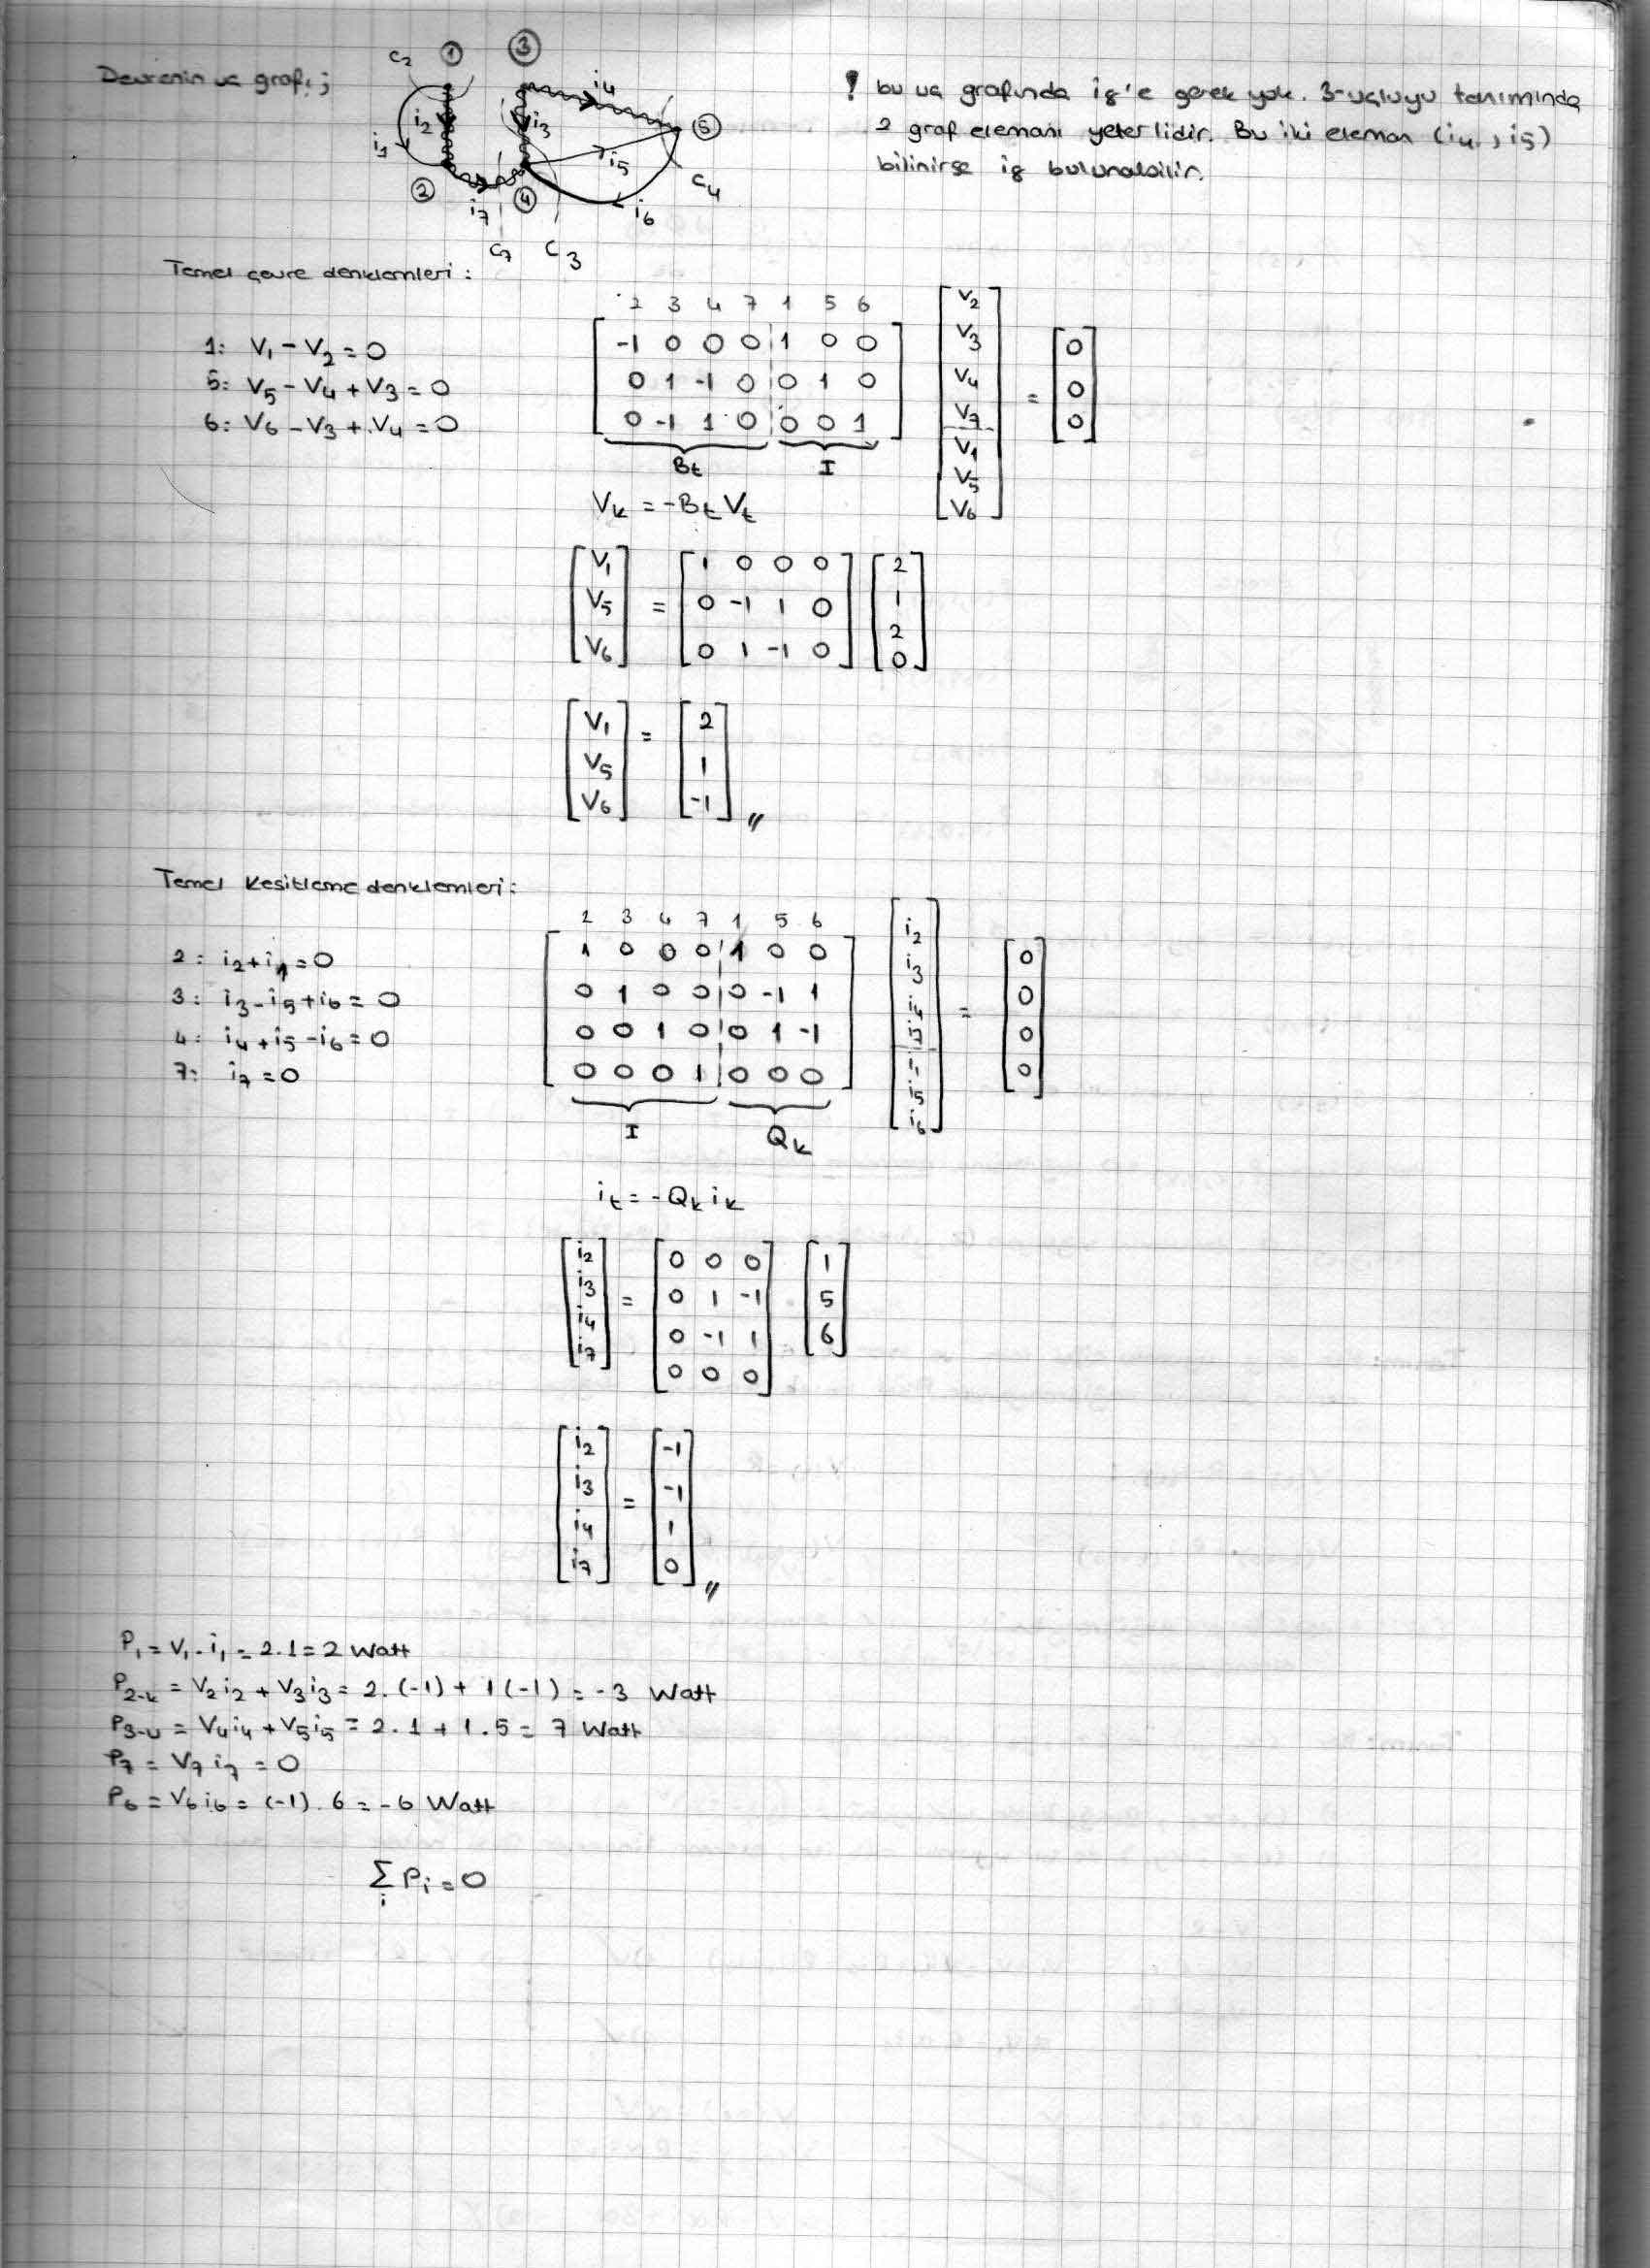 Devrenin uç grafı;
C2 ① ③
i4
i2 i3 ⑤
i1
i5
② ④ C4
i7 i6
C7 C3
! bu uç grafında i8'e gerek yok. 3-uçluyu tanımında
2 graf elemanı yeterlidir. Bu iki eleman (i4, i5)
bilinirse i8 bulunabilir.
Temel çevre denklemleri:
1: V1 - V2 = 0
5: V5 - V4 + V3 = 0
6: V6 - V3 + V4 = 0
2 3 4 7 1 5 6
-1 0 0 0 1 0 0
0 1 -1 0 0 1 0
0 -1 1 0 0 0 1
Bt I
V2
V3
V4
V7
V1
V5
V6
=
0
0
0
Vk = -Bt Vt
V1
V5
V6
=
1 0 0 0
0 -1 1 0
0 1 -1 0
2
1
2
0
V1
V5
V6
=
2
1
-1 //
Temel kesitleme denklemleri:
2: i2 + i1 = 0
3: i3 - i5 + i6 = 0
4: i4 + i5 - i6 = 0
7: i7 = 0
2 3 4 7 1 5 6
1 0 0 0 1 0 0
0 1 0 0 0 -1 1
0 0 1 0 0 1 -1
0 0 0 1 0 0 0
I Qk
i2
i3
i5
i6
=
0
0
0
0
it = -Qk ik
i2
i3
i4
i7
=
0 0 0
0 1 -1
0 -1 1
0 0 0
1
5
6
i2
i3
i4
i7
=
-1
-1
1
0 //
P1 = V1 . i1 = 2.1 = 2 Watt
P2-k = V2 i2 + V3 i3 = 2.(-1) + 1(-1) = -3 Watt
P3-u = V4 i4 + V5 i5 = 2.1 + 1.5 = 7 Watt
P7 = V7 i7 = 0
P6 = V6 i6 = (-1).6 = -6 Watt
∑ Pi = 0
i